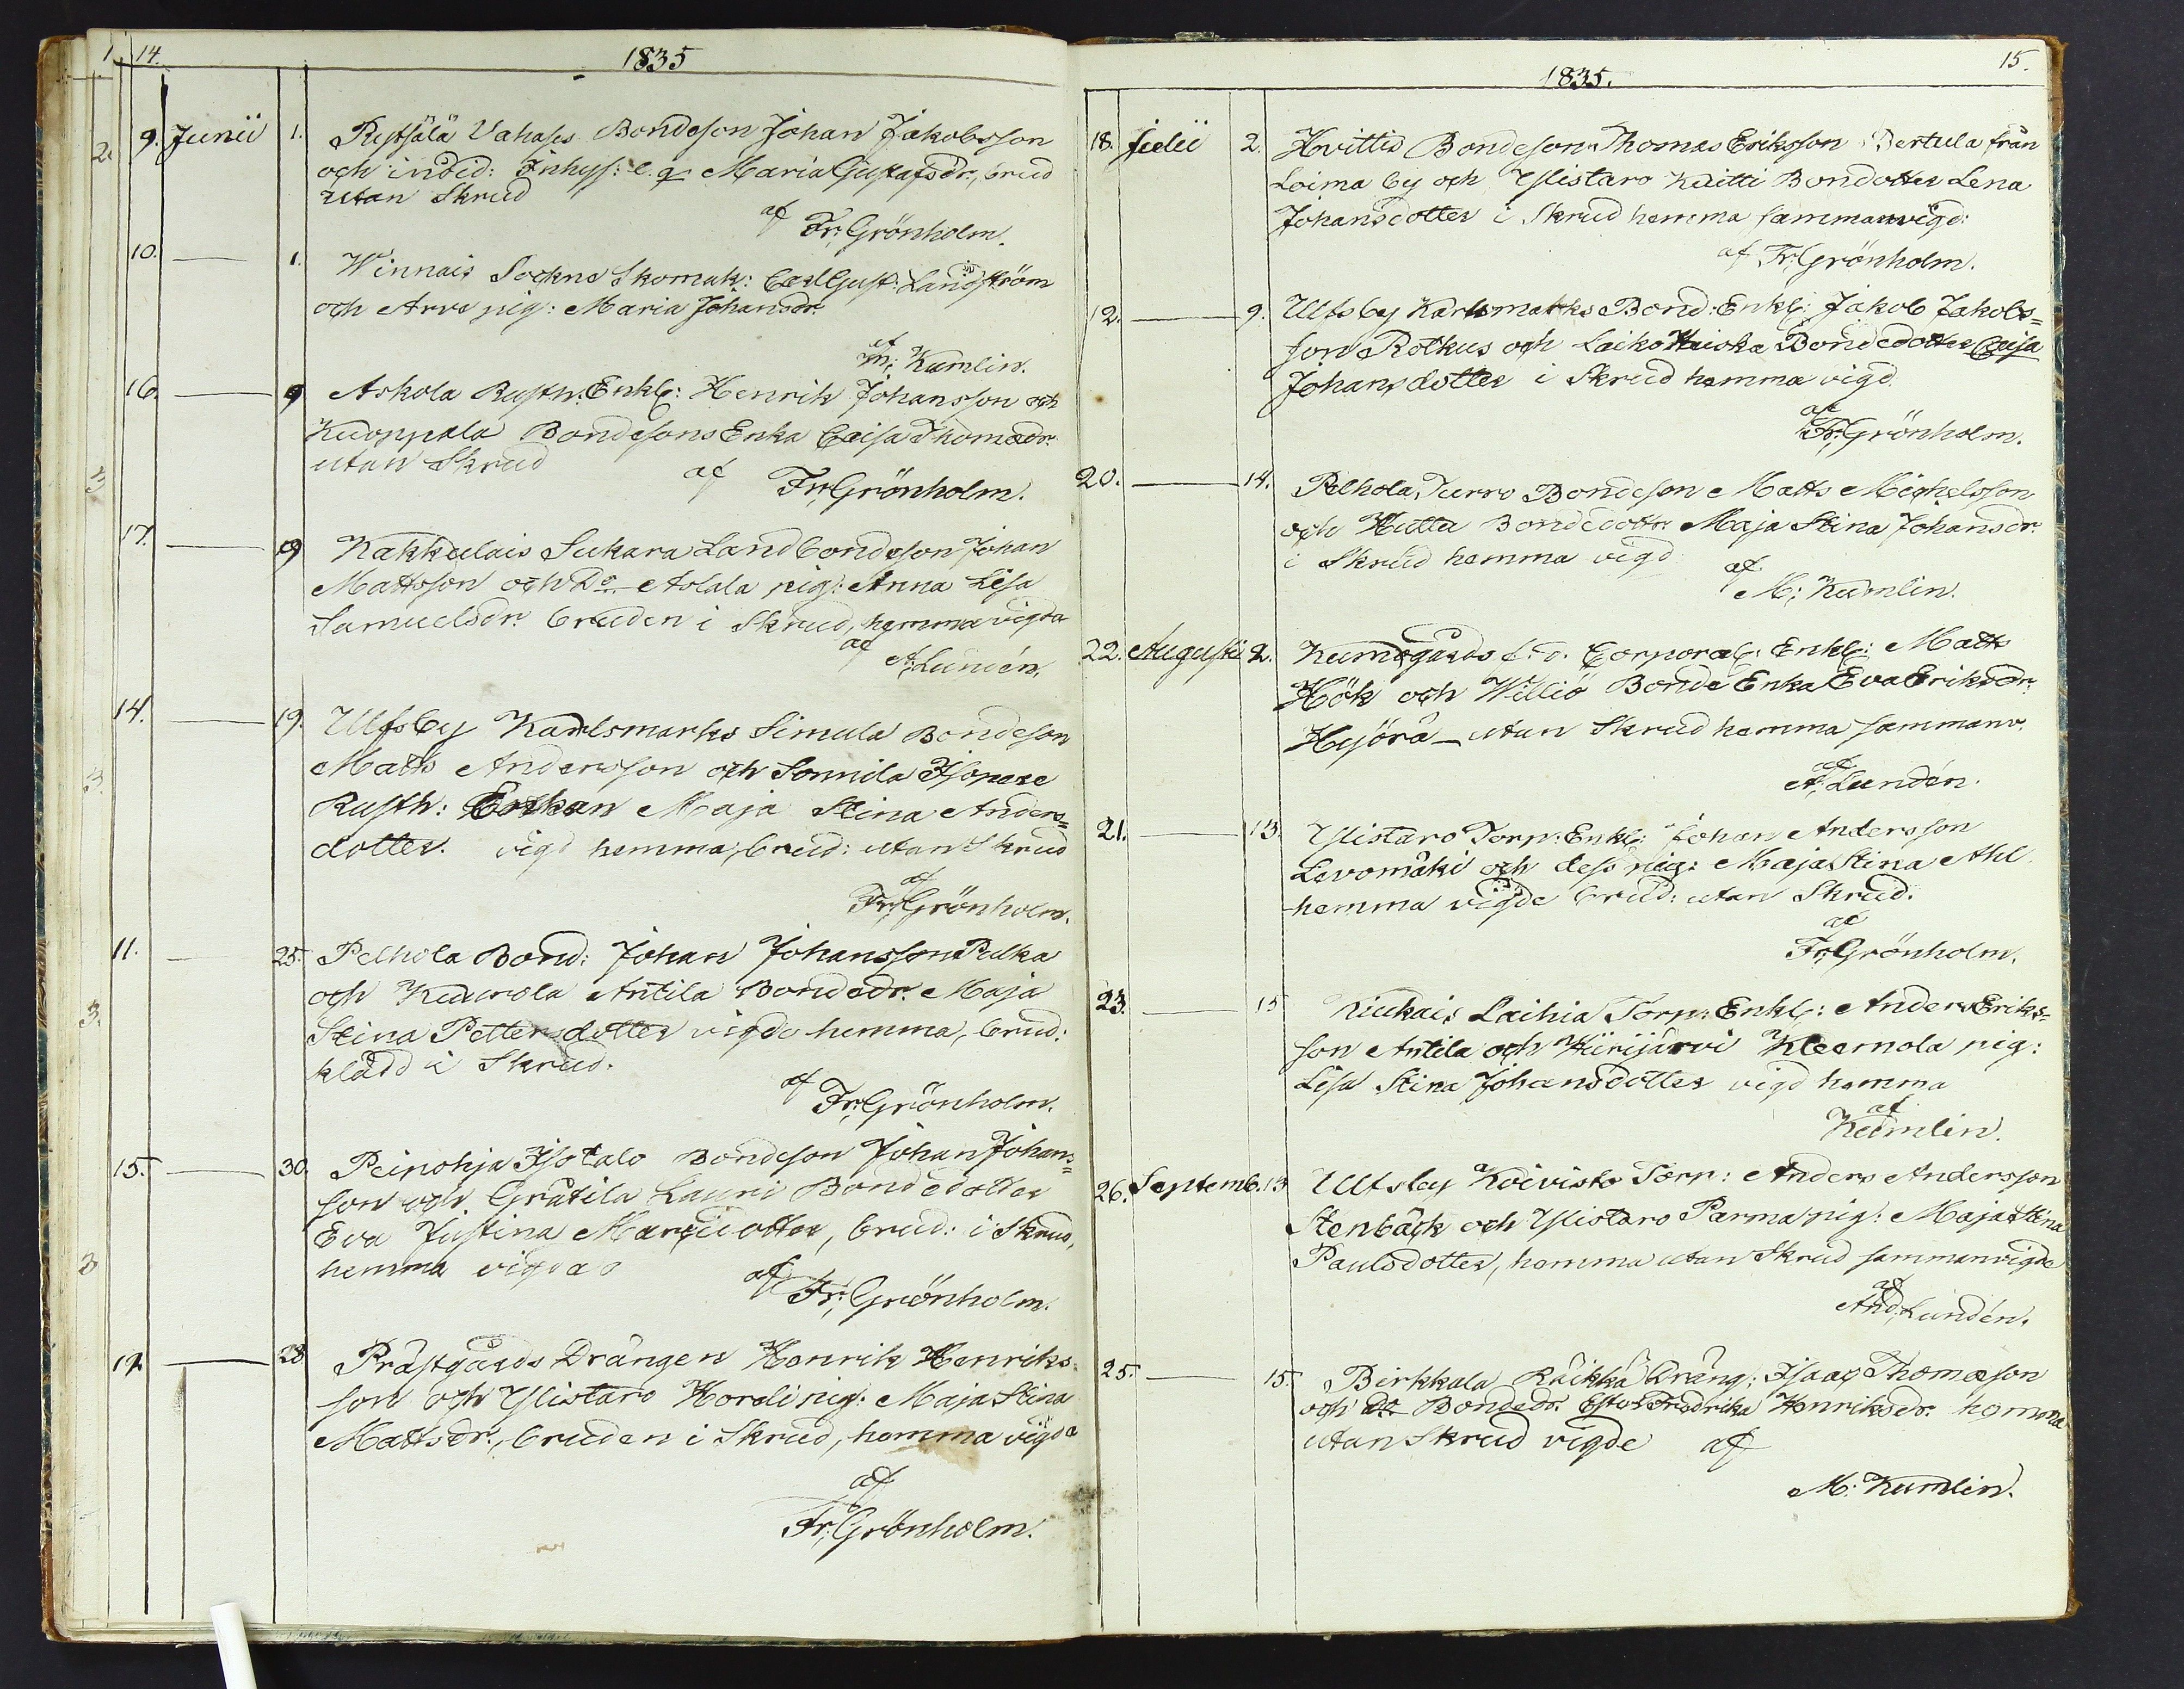 14.
1835
9. Junii 1. Rystsälä Vahases Bondeson Johan Jakobsson
och indid: Inhys: e. q. Maria Gustafsdr., brud
utan Skrud
af Fr; Grönholm.
10. — 1. Winnais Sockne Skomak: Carl Gust: Landström
och Arve pig: Maria Johansdr.
af
M; Kumlin.
16. — 9 Askola Rusth: Enkl: Henrik Johansson och
Kuoppala Bondesons Enka Caisa Thomædr.
utan Skrud
af Fr; Grönholm.
17. — 19 Kakkulais Sukara Landbondeson Johan
Mattsson och Do Aslala pig: Anna Lisa
Samuelsdr. bruden i Skrud, hemma vigda
af
A; Lundén.
14. — 19. Ulfsby Karlsmarks Simula Bondeson
Matts Andersson och Sonnila Isopere
Rusth: Enkan Maja Stina Anders=
dotter. vigd hemma, brud: utan Skrud
af
Fr; Grönholm.
11. — 25. Pelhola Bond: Johan Johansson Pelka
och Kuurola Antila Bondedr. Maja
Stina Pettersdotter vigde hemma, brud:
klädd i Skrud.
af Fr; Grönholm.
15. — 30. Peinohja Isotalo Bondeson Johan Johans=
son och Gråtila Lauri Bondedotter
Eva Justina Marcidotter, brud: i Skrud,
hemma vigda
af Fr; Grönholm.
12. — 28 Prästgårds Drängen Henrik Henriks=
son och Ylistaro Hordi pig: Maja Stina
Mattsdr., bruden i Skrud, hemma vigda
af
Fr; Grönholm.
15.
1835.
18. Julii 2. Hvittis Bondeson Thomas Eriksson Bertula från
Loima by och Ylistaro Kuitti Bondotter Lena
Johansdotter i Skrud hemma sammanvigd:
af Fr; Grönholm.
12. — 9. Ulfsby Karlsmarks Bond: Enkl: Jakob Jakobs=
son Rotkus och Laiko Huiska Bondedotter Caisa
Johansdotter i Skrud hemma vigd.
af
Fr; Grönholm.
20. — 14. Pelhola, Turro Bondeson Matts Michelsson
och Hutta Bondedottr Maja Stina Johansdr.
i Skrud hemma vigd
af
M; Kumlin.
22. Augusti 2. Kumogårds f. d. Corporal: Enkl: Matts
Hök och Williö Bonde Enka Eva Eriksdr.
Hyörä — utan Skrud hemma sammanv.
af
A; Lundén.
21. — 13. Ylistaro Torp: Enkl: Johan Andersson
Levomäki och dess pig: Maja Stina Ahl
hemma vigde brud: utan Skrud.
af
Fr; Grönholm.
23. — 15 Kiukais Laihia Torp: Enkl: Anders Eriks=
son Antila och Hiirijärvi Kleemola pig:
Lisa Stina Johansdotter vigd hemma
af
Kumlin.
26. Septemb. 13 Ulfsby Koivisto Torp: Anders Andersson
Stenbäck och Ylistaro Parma pig: Maja Stina
Paulsdotter, hemma utan Skrud sammanvigde
af
And; Lundén.
25. — 15. Birkkala Räikkä Dräng: Isaac Thomæson
och do Bondedr. Ester Fredrika Henriksdr. hemma
utan Skrud vigde af
M: Kumlin.